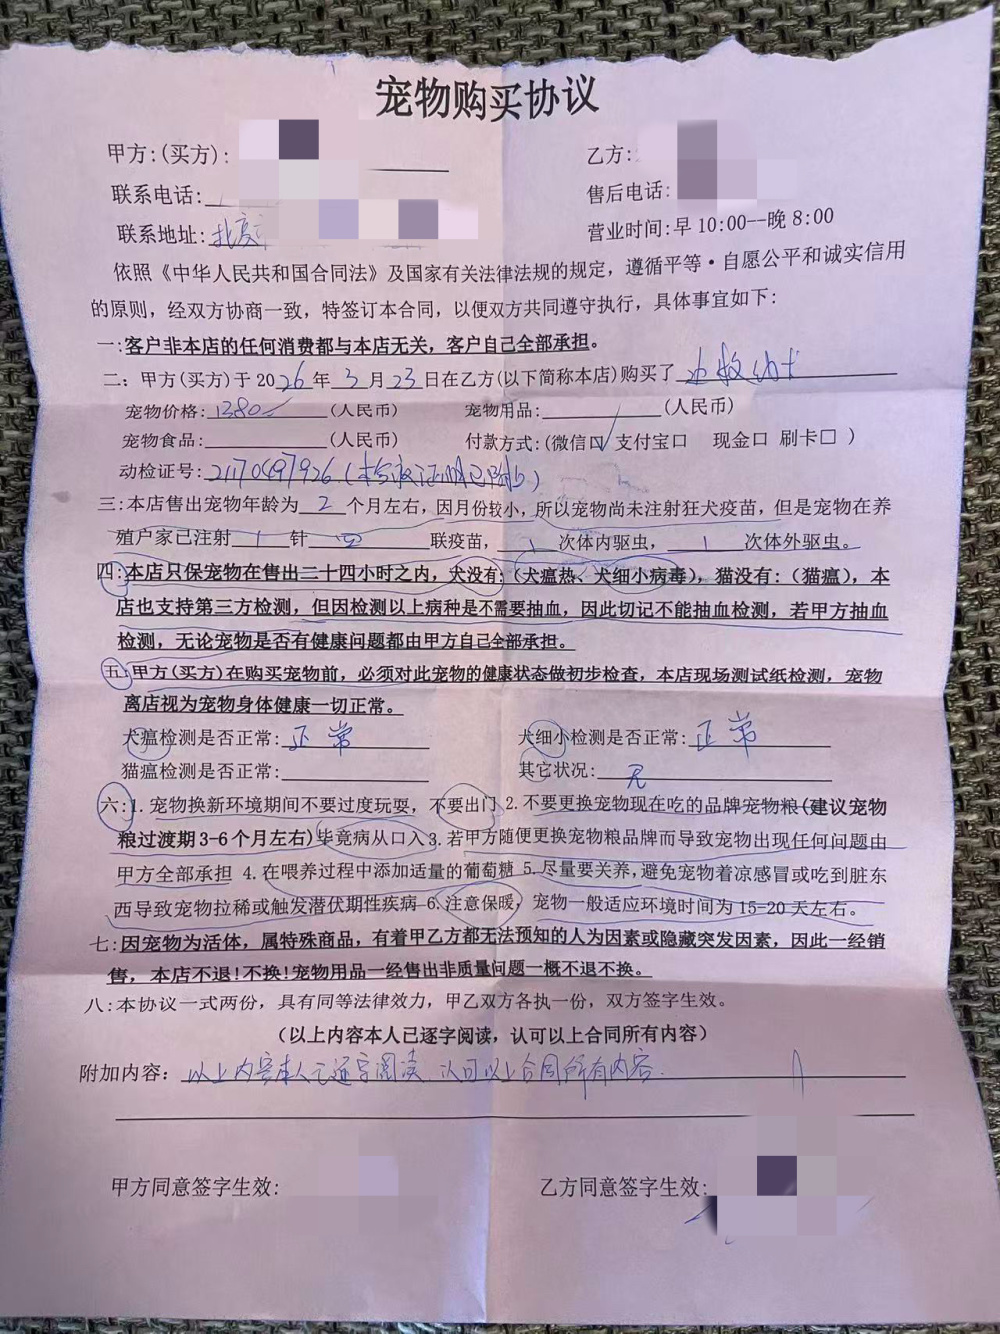 宠物购买协议
甲方:(买方): 乙方:
联系电话: 售后电话:
联系地址: 北京 营业时间:早10:00--晚8:00
依照《中华人民共和国合同法》及国家有关法律法规的规定，遵循平等·自愿公平和诚实信用
的原则，经双方协商一致，特签订本合同，以便双方共同遵守执行，具体事宜如下:
一:客户非本店的任何消费都与本店无关，客户自己全部承担。
二: 甲方(买方)于2026年3月23日在乙方(以下简称本店)购买了 边牧幼犬
宠物价格: 1380 (人民币) 宠物用品: (人民币)
宠物食品: (人民币) 付款方式:(微信口√ 支付宝口 现金口 刷卡口 )
动检证号: 21170497926(检疫证明已附)
三:本店售出宠物年龄为 2 个月左右，因月份较小，所以宠物尚未注射狂犬疫苗，但是宠物在养
殖户家已注射 1 针 四 联疫苗， 1 次体内驱虫， 1 次体外驱虫。
四:本店只保宠物在售出二十四小时之内，犬没有:（犬瘟热、犬细小病毒），猫没有:（猫瘟），本
店也支持第三方检测，但因检测以上病种是不需要抽血，因此切记不能抽血检测，若甲方抽血
检测，无论宠物是否有健康问题都由甲方自己全部承担。
五:甲方(买方)在购买宠物前，必须对此宠物的健康状态做初步检查，本店现场测试纸检测，宠物
离店视为宠物身体健康一切正常。
犬瘟检测是否正常: 正常 犬细小检测是否正常: 正常
猫瘟检测是否正常: 其它状况: 无
六:1. 宠物换新环境期间不要过度玩耍，不要出门 2.不要更换宠物现在吃的品牌宠物粮(建议宠物
粮过渡期3-6个月左右)毕竟病从口入3.若甲方随便更换宠物粮品牌而导致宠物出现任何问题由
甲方全部承担 4.在喂养过程中添加适量的葡萄糖 5.尽量要关养，避免宠物着凉感冒或吃到脏东
西导致宠物拉稀或触发潜伏期性疾病 6.注意保暖，宠物一般适应环境时间为15-20天左右。
七:因宠物为活体，属特殊商品，有着甲乙方都无法预知的人为因素或隐藏突发因素，因此一经销
售，本店不退!不换!宠物用品一经售出非质量问题一概不退不换。
八:本协议一式两份，具有同等法律效力，甲乙双方各执一份，双方签字生效。
（以上内容本人已逐字阅读，认可以上合同所有内容）
附加内容: 以上内容本人已逐字阅读 认可以上合同所有内容.
甲方同意签字生效: 乙方同意签字生效: